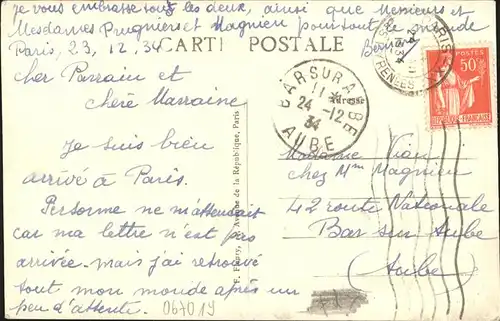 je vous embrasse tous les deux, ainsi que Messieurs et
Mesdames Prugniers et Magnien pour tout le monde
Paris, 23, 12, 34
CARTE POSTALE
cher Parrain et
chère Marraine
Je suis bien
arrivé à Paris.
Personne ne m'attendait
car ma lettre n'est pas
arrivée. mais j'ai retrouvé
tout mon monde après un
peu d'attente.
067019
Avenue de la République, Paris
BAR SUR AUBE
11 H
24 -12
34
AUBE
Adresse
PARIS
POSTES
50c
REPUBLIQUE FRANÇAISE
Madame Vian
chez Mm Magnien
42 route Nationale
Bar sur Aube
(Aube)